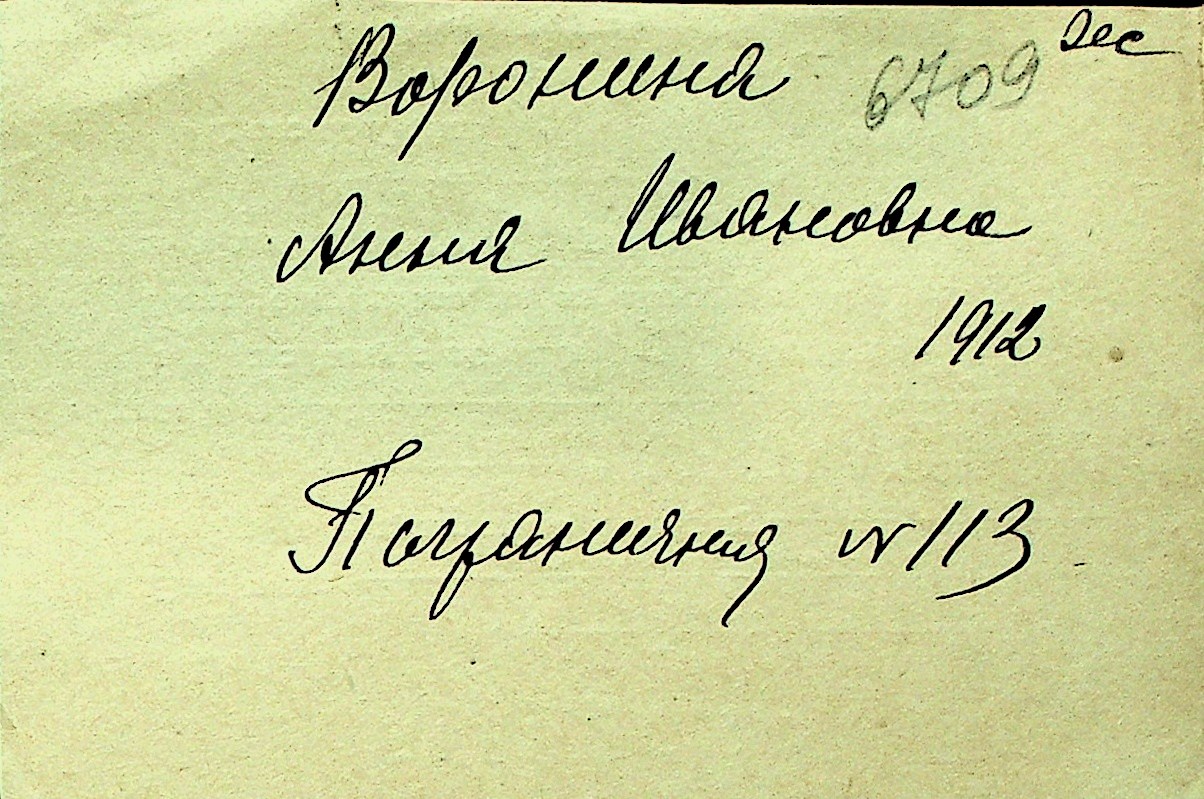 Воронина 6709
Анна Ивановна
1912
Пограничная № 113